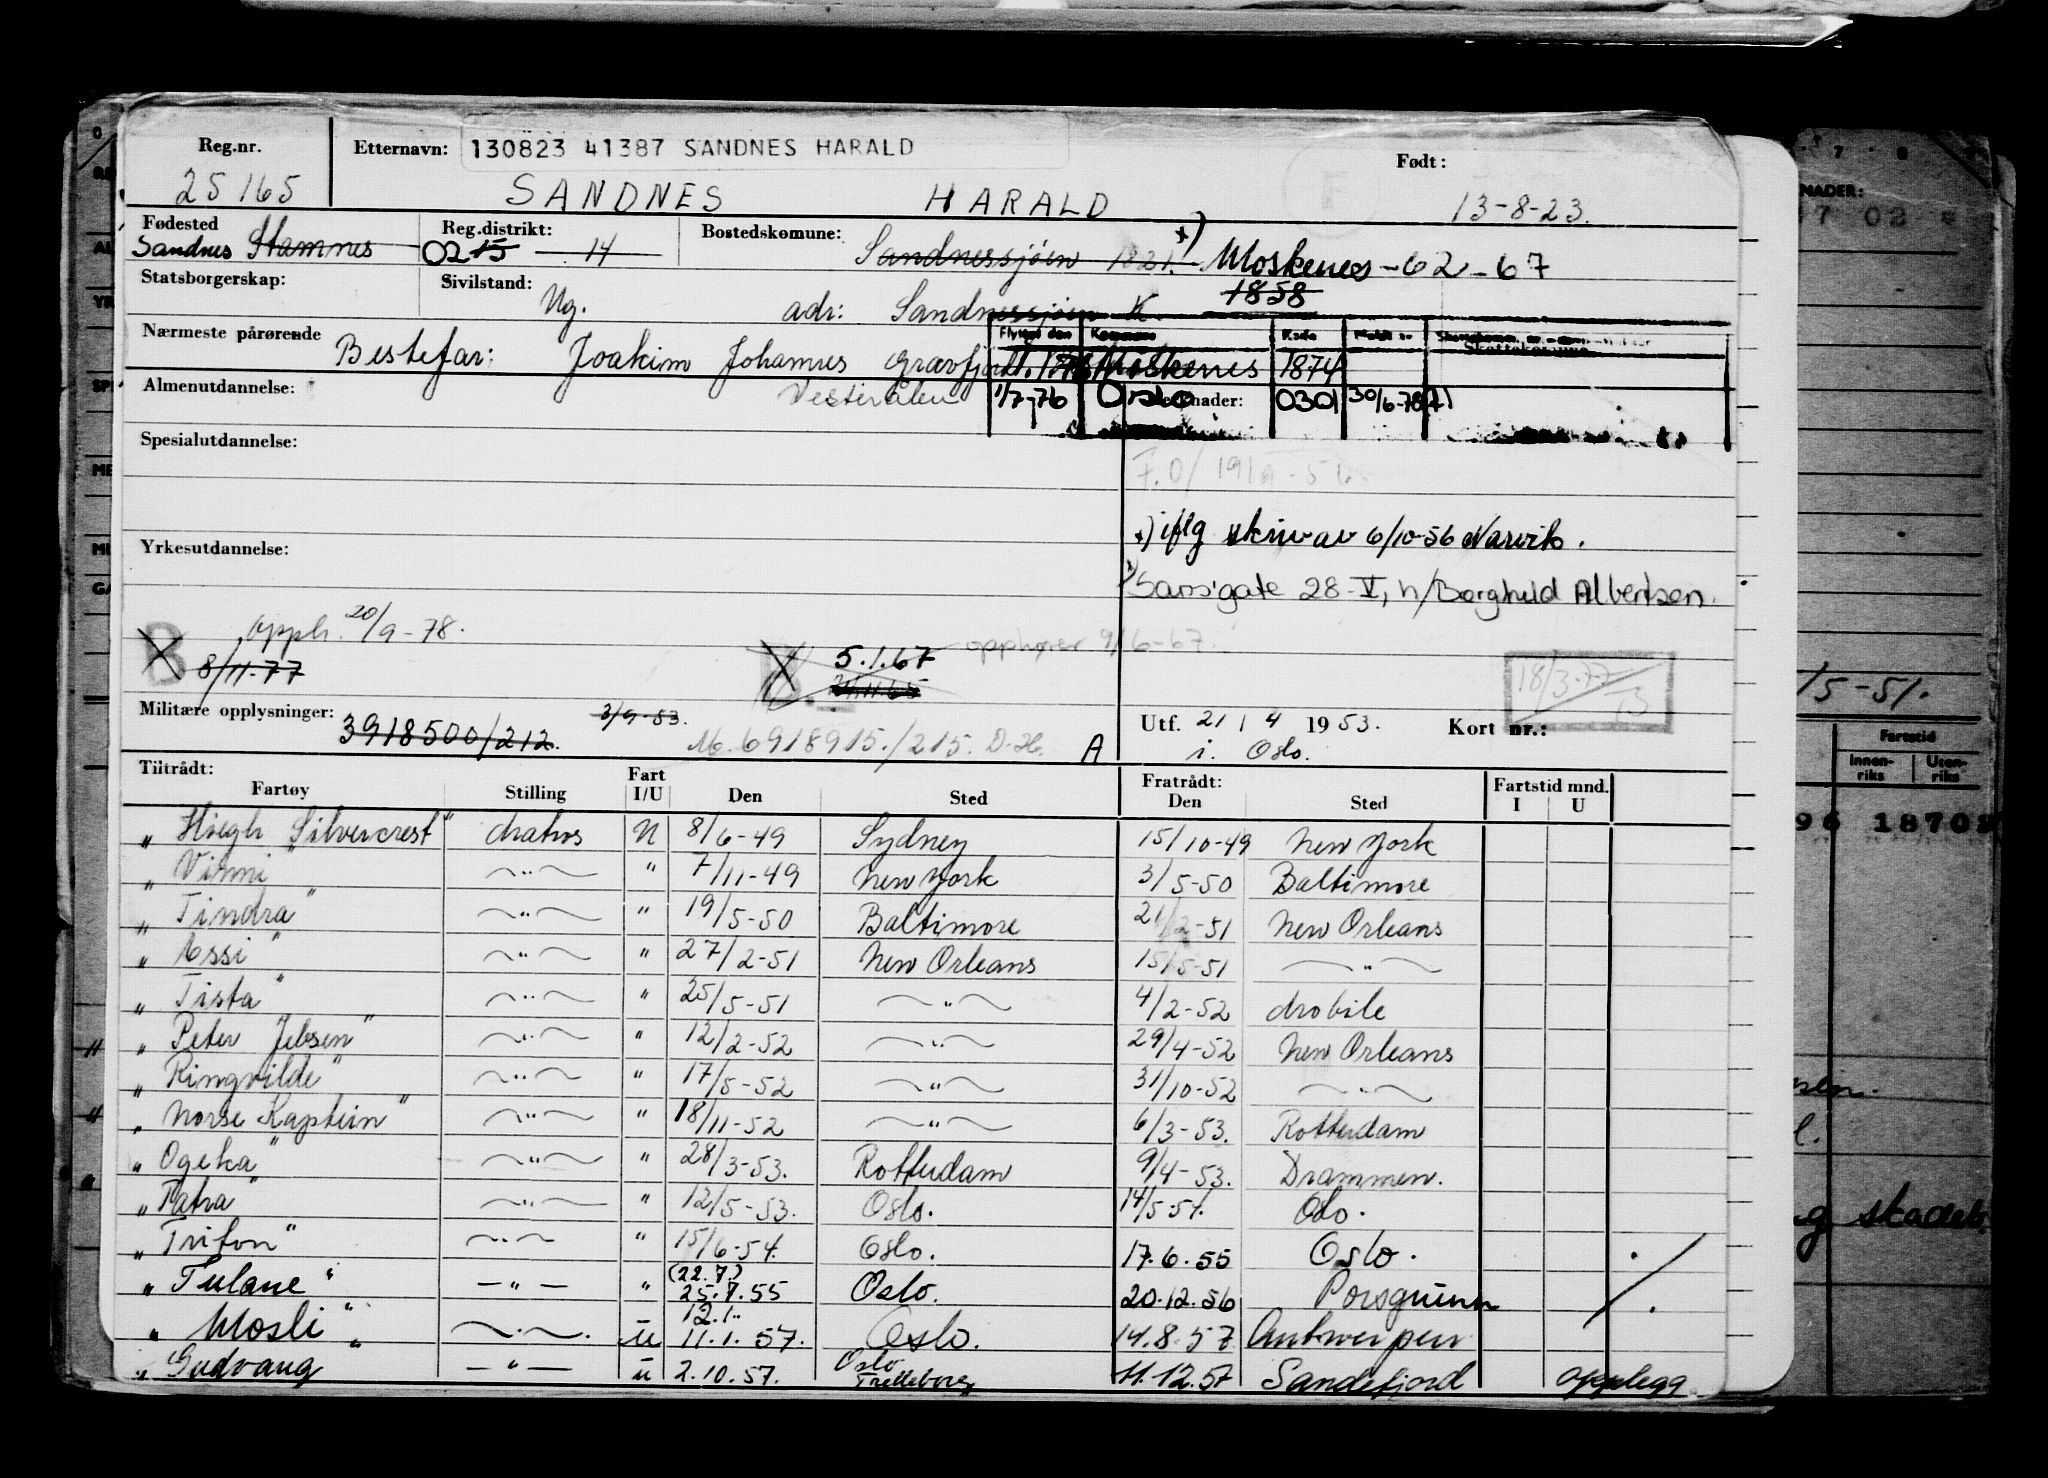 Reg.nr. Etternavn: 130823 41387 SANDNES HARALD Født:
25165 SANDNES HARALD 13-8-23.
Fødested Reg.distrikt: Bostedskomune:
Sandnes Stamnes 0215 14 Sandnessjøen 1821. x) Moskenes-62-67
Statsborgerskap: Sivilstand: Ug. adr: Sandnessjøen K. 1858
Nærmeste pårørende Bestefar: Joakim Johannes Gravfjord.
Flyttet den Kommune Kode Meldt Skattekomune
Moskenes 1874
Almenutdannelse: Vesterålen 1/7-76 Oslo 0301 30/6-78
Spesialutdannelse:
F.O/
x) iflg skriv av 6/10-56 Narvik.
Yrkesutdannelse:
x) Sarsgate 28-V, h/Borghild Albertsen.
opph. 20/9-78.
B 8/11-77 B 5.1.67 opphører 9/6-67.
18/3-77
Militære opplysninger: 3918500/212. 3/9-53. M. 6918915./215. D.H. A
Utf. 21/4 1953. Kort nr.:
i. Oslo.
Tiltrådt: Fart Fratrådt: Fartstid mnd.
Fartøy Stilling I/U Den Sted Den Sted I U
"Høegh Silvercrest" matros U 8/6-49 Sydney 15/10-49 New York
"Virmi" —"— " 7/11-49 New York 3/5-50 Baltimore
"Tindra" —"— " 19/5-50 Baltimore 21/2-51 New Orleans
"Essi" —"— " 27/2-51 New Orleans 15/5-51 —"—
"Tista" —"— " 25/5-51 —"— 4/2-52 Mobile
"Peter Jebsen" —"— " 12/2-52 —"— 29/4-52 New Orleans
"Ringvilde" —"— " 17/5-52 —"— 31/10-52 —"—
"Norse Kaptein" —"— " 18/11-52 —"— 6/3-53. Rotterdam
"Ogeka" —"— " 28/3-53. Rotterdam 9/4-53. Drammen.
"Patra" —"— " 12/5-53. Oslo. 14/5-54. Oslo.
"Triton" —"— " 15/6-54. Oslo. 17.6.55 Oslo.
"Tulane" —"— " (22.7.) 25.7.55 Oslo. 20.12.56 Porsgrunn
"Mosli" —"— U 12.1. 11.1.57. Oslo. 14.8.57 Antwerpen
"Gudvang —"— U 2.10.57. Oslo Trelleborg 11.12.57 Sandefjord opplegg
NADER:
/5-51.
Fartstid
Innen-riks Uten-riks
96 18702
skadet